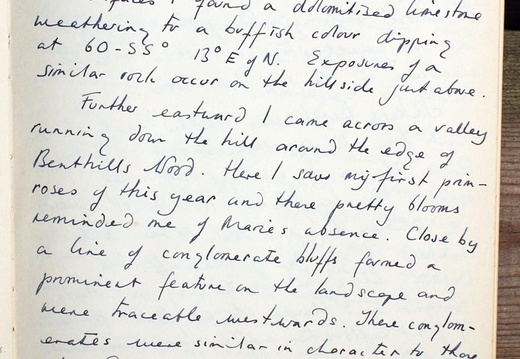 I found a dolomitized limestone
weathering to a buffish colour dipping
at 60-55° 13° E of N. Exposures of a
similar rock occur on the hillside just above.
Further eastward I came across a valley
running down the hill around the edge of
Benthills Wood. Here I saw my first prim-
roses of this year and these pretty blooms
reminded me of Marie's absence. Close by
a line of conglomerate bluffs formed a
prominent feature on the landscape and
were traceable westwards. These conglom-
erates were similar in character to those